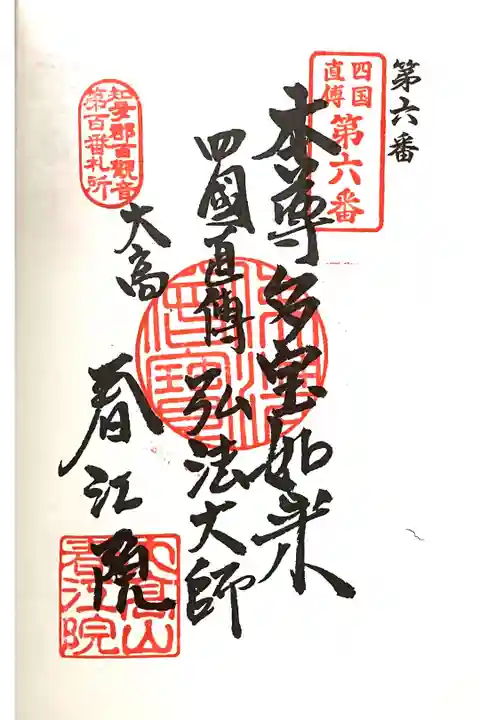 第六番
四国
直傳
第六番
本尊多宝如来
四國直傳 弘法大師
知多郡百觀音
第百番札所
大高
春江院
佛法僧寶
大高山
春江院